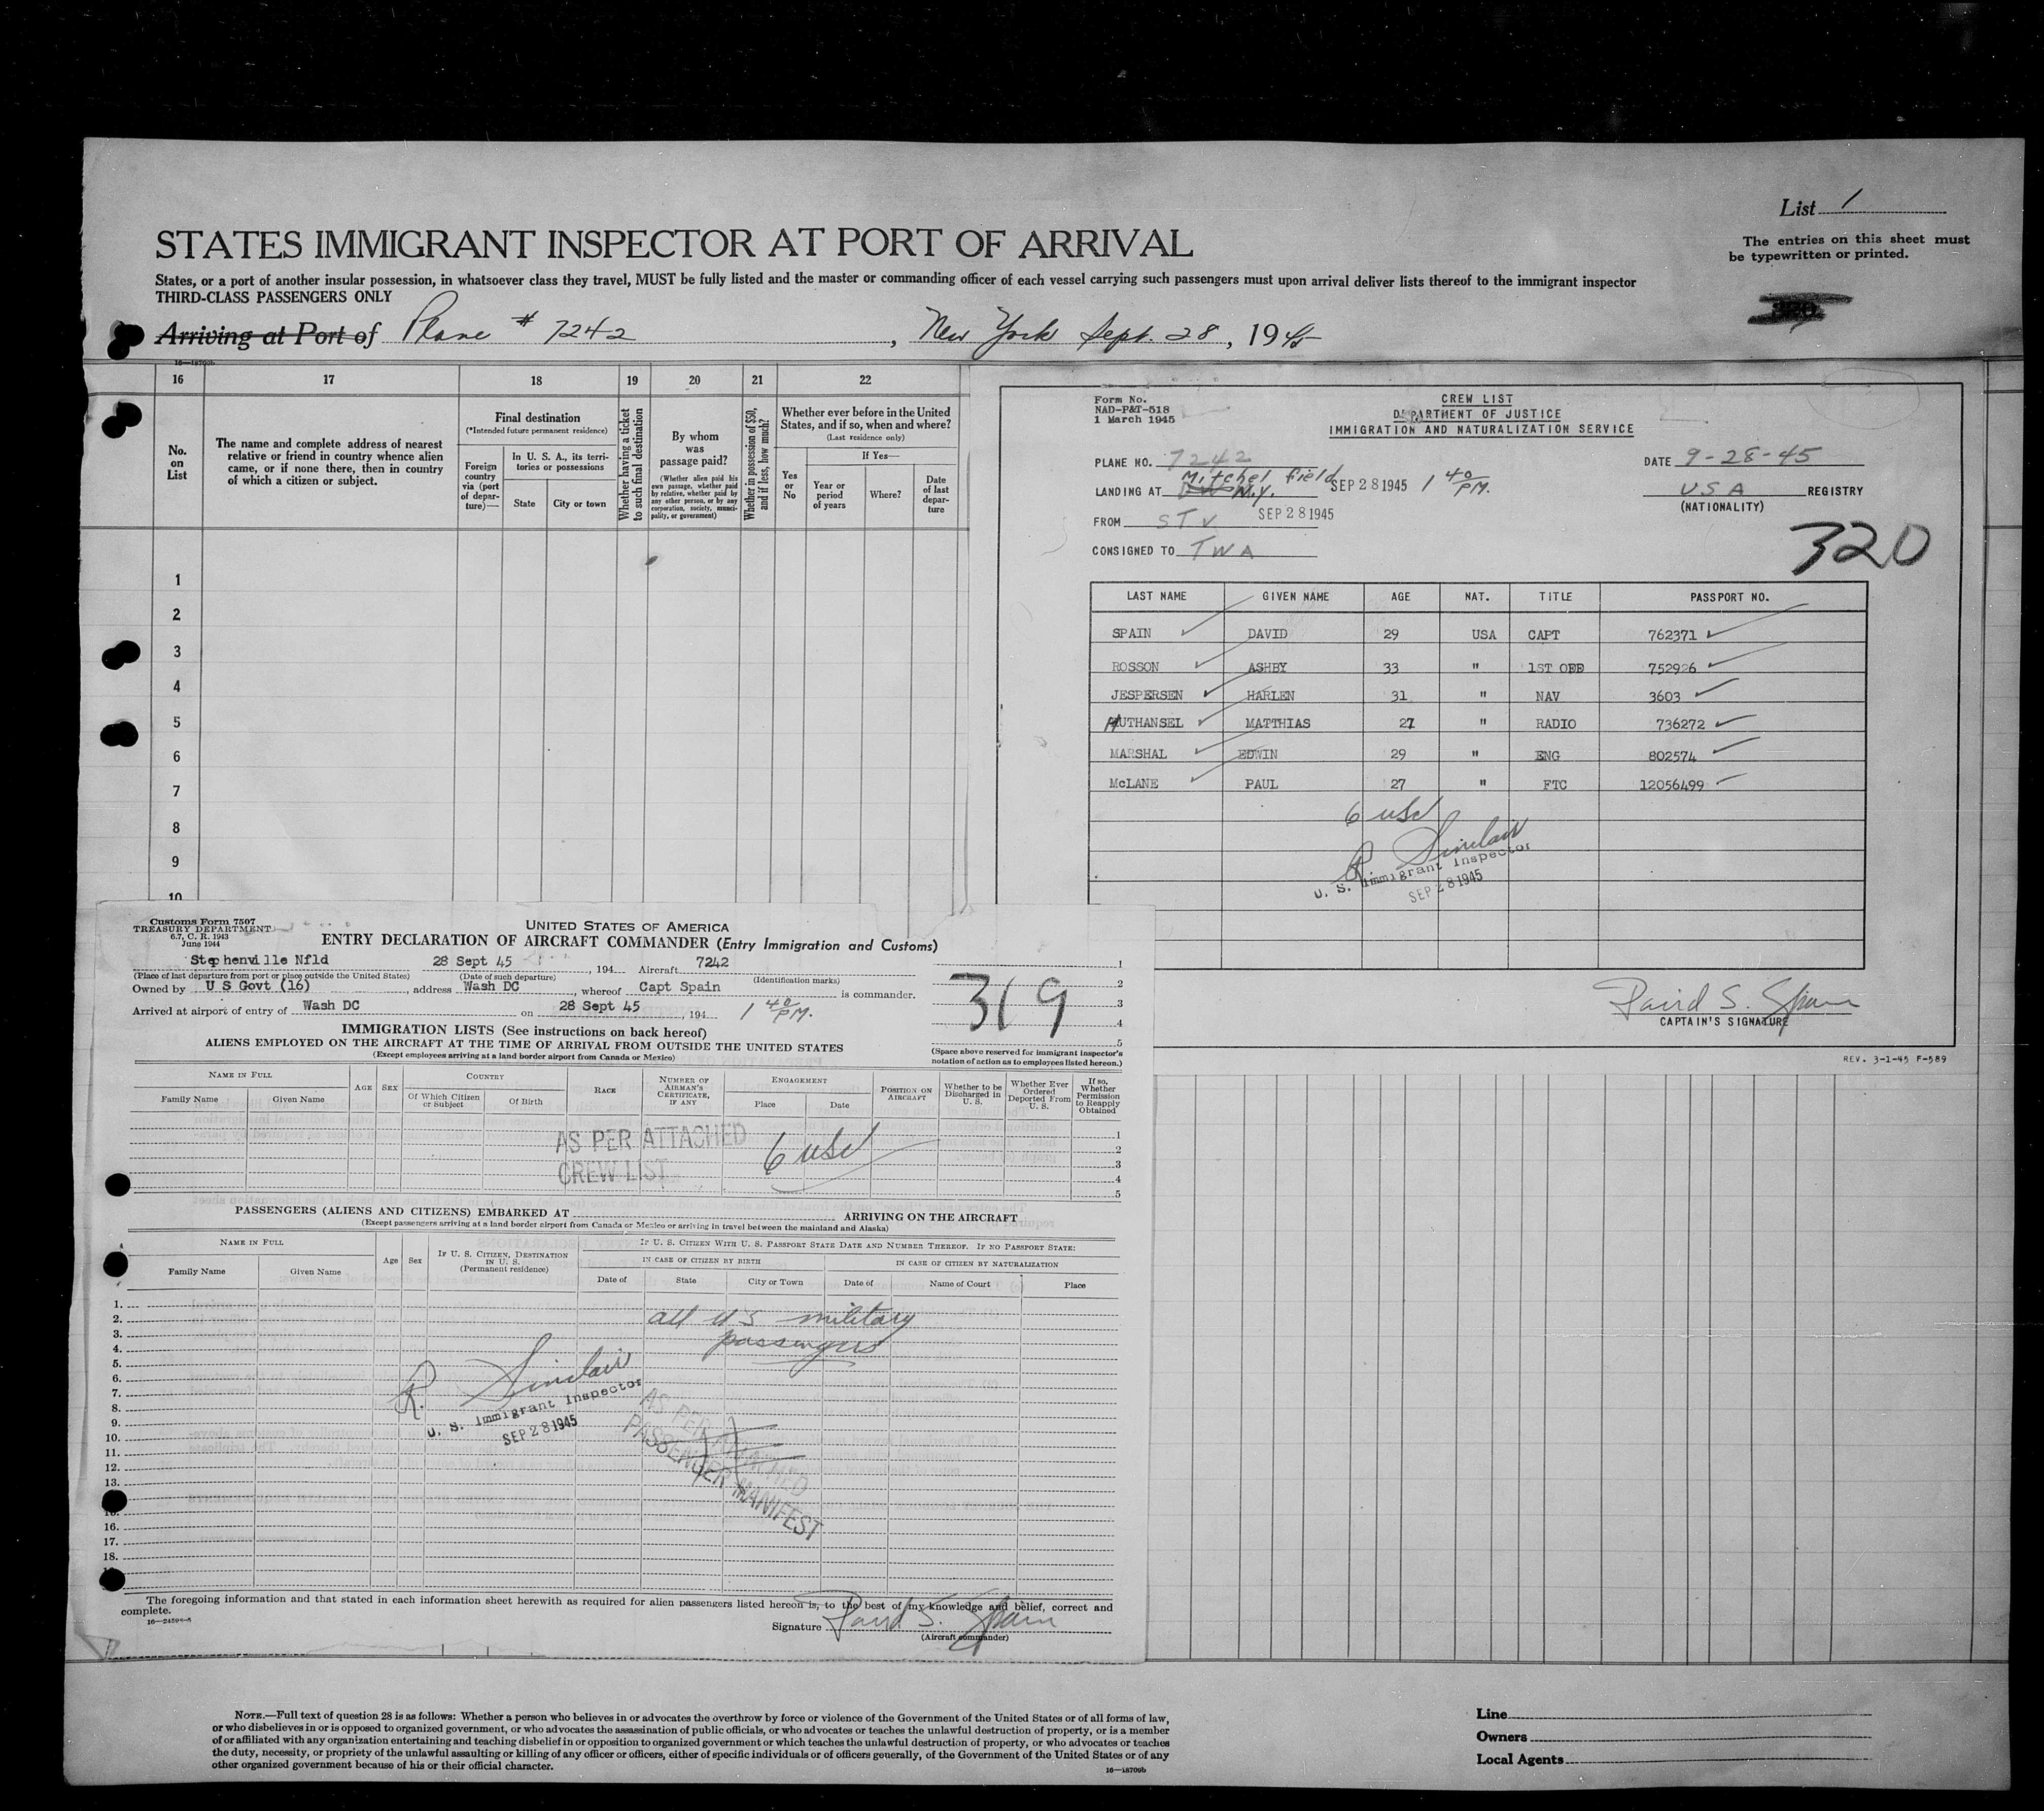 List 1
The entries on this sheet must
be typewritten or printed.
STATES IMMIGRANT INSPECTOR AT PORT OF ARRIVAL
States, or a port of another insular possession, in whatsoever class they travel, MUST be fully listed and the master or commanding officer of each vessel carrying such passengers must upon arrival deliver lists thereof to the immigrant inspector
THIRD-CLASS PASSENGERS ONLY
Arriving at Port of Plane # 7242, New York Sept. 28, 1945
16—18709b
16 17 18 19 20 21 22
No. on List
The name and complete address of nearest
relative or friend in country whence alien
came, or if none there, then in country
of which a citizen or subject.
Final destination
(*Intended future permanent residence)
Foreign country via (port of departure)—
In U. S. A., its territories or possessions
State
City or town
Whether having a ticket to such final destination
By whom was passage paid?
(Whether alien paid his own passage, whether paid by relative, whether paid by any other person, or by any corporation, society, municipality, or government)
Whether in possession of $50, and if less, how much?
Whether ever before in the United States, and if so, when and where?
(Last residence only)
Yes or No
If Yes—
Year or period of years
Where?
Date of last departure
1
2
3
4
5
6
7
8
9
10
Form No.
NAD-P&T-518
1 March 1945
CREW LIST
DEPARTMENT OF JUSTICE
IMMIGRATION AND NATURALIZATION SERVICE
PLANE NO. 7242
DATE 9-28-45
LANDING AT Mitchel Field N.Y. SEP 28 1945 1 40 PM.
USA REGISTRY
(NATIONALITY)
FROM STV SEP 28 1945
CONSIGNED TO TWA
320
LAST NAME GIVEN NAME AGE NAT. TITLE PASSPORT NO.
SPAIN DAVID 29 USA CAPT 762371
ROSSON ASHBY 33 " 1ST OFF 752926
JESPERSEN HARLEN 31 " NAV 3603
HUTHANSEL MATTHIAS 27 " RADIO 736272
MARSHAL EDWIN 29 " ENG 802574
McLANE PAUL 27 " FTC 12056499
6 USC
R. Sinclair
U. S. Immigrant Inspector
SEP 28 1945
David S. Spain
CAPTAIN'S SIGNATURE
REV. 3-1-45 F-589
Customs Form 7507
TREASURY DEPARTMENT
6.7, C. R. 1943
June 1944
UNITED STATES OF AMERICA
ENTRY DECLARATION OF AIRCRAFT COMMANDER (Entry Immigration and Customs)
Stephenville Nfld 28 Sept 45, 194 Aircraft 7242
(Place of last departure from port or place outside the United States) (Date of such departure) (Identification marks)
Owned by U S Govt (16), address Wash DC, whereof Capt Spain is commander.
Arrived at airport of entry of Wash DC on 28 Sept 45, 194 1 40 PM.
319
1
2
3
4
5
IMMIGRATION LISTS (See instructions on back hereof)
ALIENS EMPLOYED ON THE AIRCRAFT AT THE TIME OF ARRIVAL FROM OUTSIDE THE UNITED STATES
(Except employees arriving at a land border airport from Canada or Mexico)
(Space above reserved for immigrant inspector's
notation of action as to employees listed hereon.)
NAME IN FULL
Family Name
Given Name
AGE
SEX
COUNTRY
Of Which Citizen or Subject
Of Birth
RACE
NUMBER OF AIRMAN'S CERTIFICATE, IF ANY
ENGAGEMENT
Place
Date
POSITION ON AIRCRAFT
Whether to be Discharged in U. S.
Whether Ever Ordered Deported From U. S.
If so, Whether Permission to Reapply Obtained
AS PER ATTACHED
CREW LIST
6 USC
1
2
3
4
5
PASSENGERS (ALIENS AND CITIZENS) EMBARKED AT ARRIVING ON THE AIRCRAFT
(Except passengers arriving at a land border airport from Canada or Mexico or arriving in travel between the mainland and Alaska)
NAME IN FULL
Family Name
Given Name
Age
Sex
IF U. S. CITIZEN, DESTINATION IN U. S.
(Permanent residence)
IF U. S. CITIZEN WITH U. S. PASSPORT STATE DATE AND NUMBER THEREOF. IF NO PASSPORT STATE:
IN CASE OF CITIZEN BY BIRTH
IN CASE OF CITIZEN BY NATURALIZATION
Date of
State
City or Town
Date of
Name of Court
Place
1.
2.
3.
4.
5.
6.
7.
8.
9.
10.
11.
12.
13.
15.
16.
17.
18.
all US military
passengers
R. Sinclair
U. S. Immigrant Inspector
SEP 28 1945
AS PER ATTACHED
PASSENGER MANIFEST
The foregoing information and that stated in each information sheet herewith as required for alien passengers listed hereon is, to the best of my knowledge and belief, correct and
complete.
16—24598-5
Signature David S. Spain
(Aircraft commander)
NOTE.—Full text of question 28 is as follows: Whether a person who believes in or advocates the overthrow by force or violence of the Government of the United States or of all forms of law,
or who disbelieves in or is opposed to organized government, or who advocates the assassination of public officials, or who advocates or teaches the unlawful destruction of property, or is a member
of or affiliated with any organization entertaining and teaching disbelief in or opposition to organized government or which teaches the unlawful destruction of property, or who advocates or teaches
the duty, necessity, or propriety of the unlawful assaulting or killing of any officer or officers, either of specific individuals or of officers generally, of the Government of the United States or of any
other organized government because of his or their official character.
16—18709b
Line
Owners
Local Agents